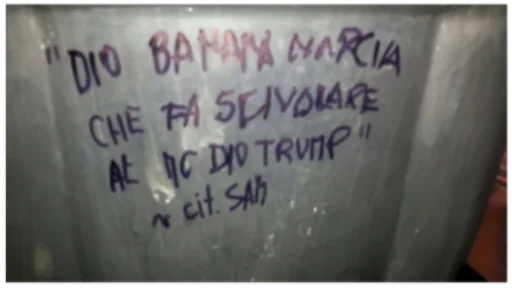 "DIO BANANA MARCIA
CHE FA SCIVOLARE
AL MC DIO TRUMP"
~ cit. SAM